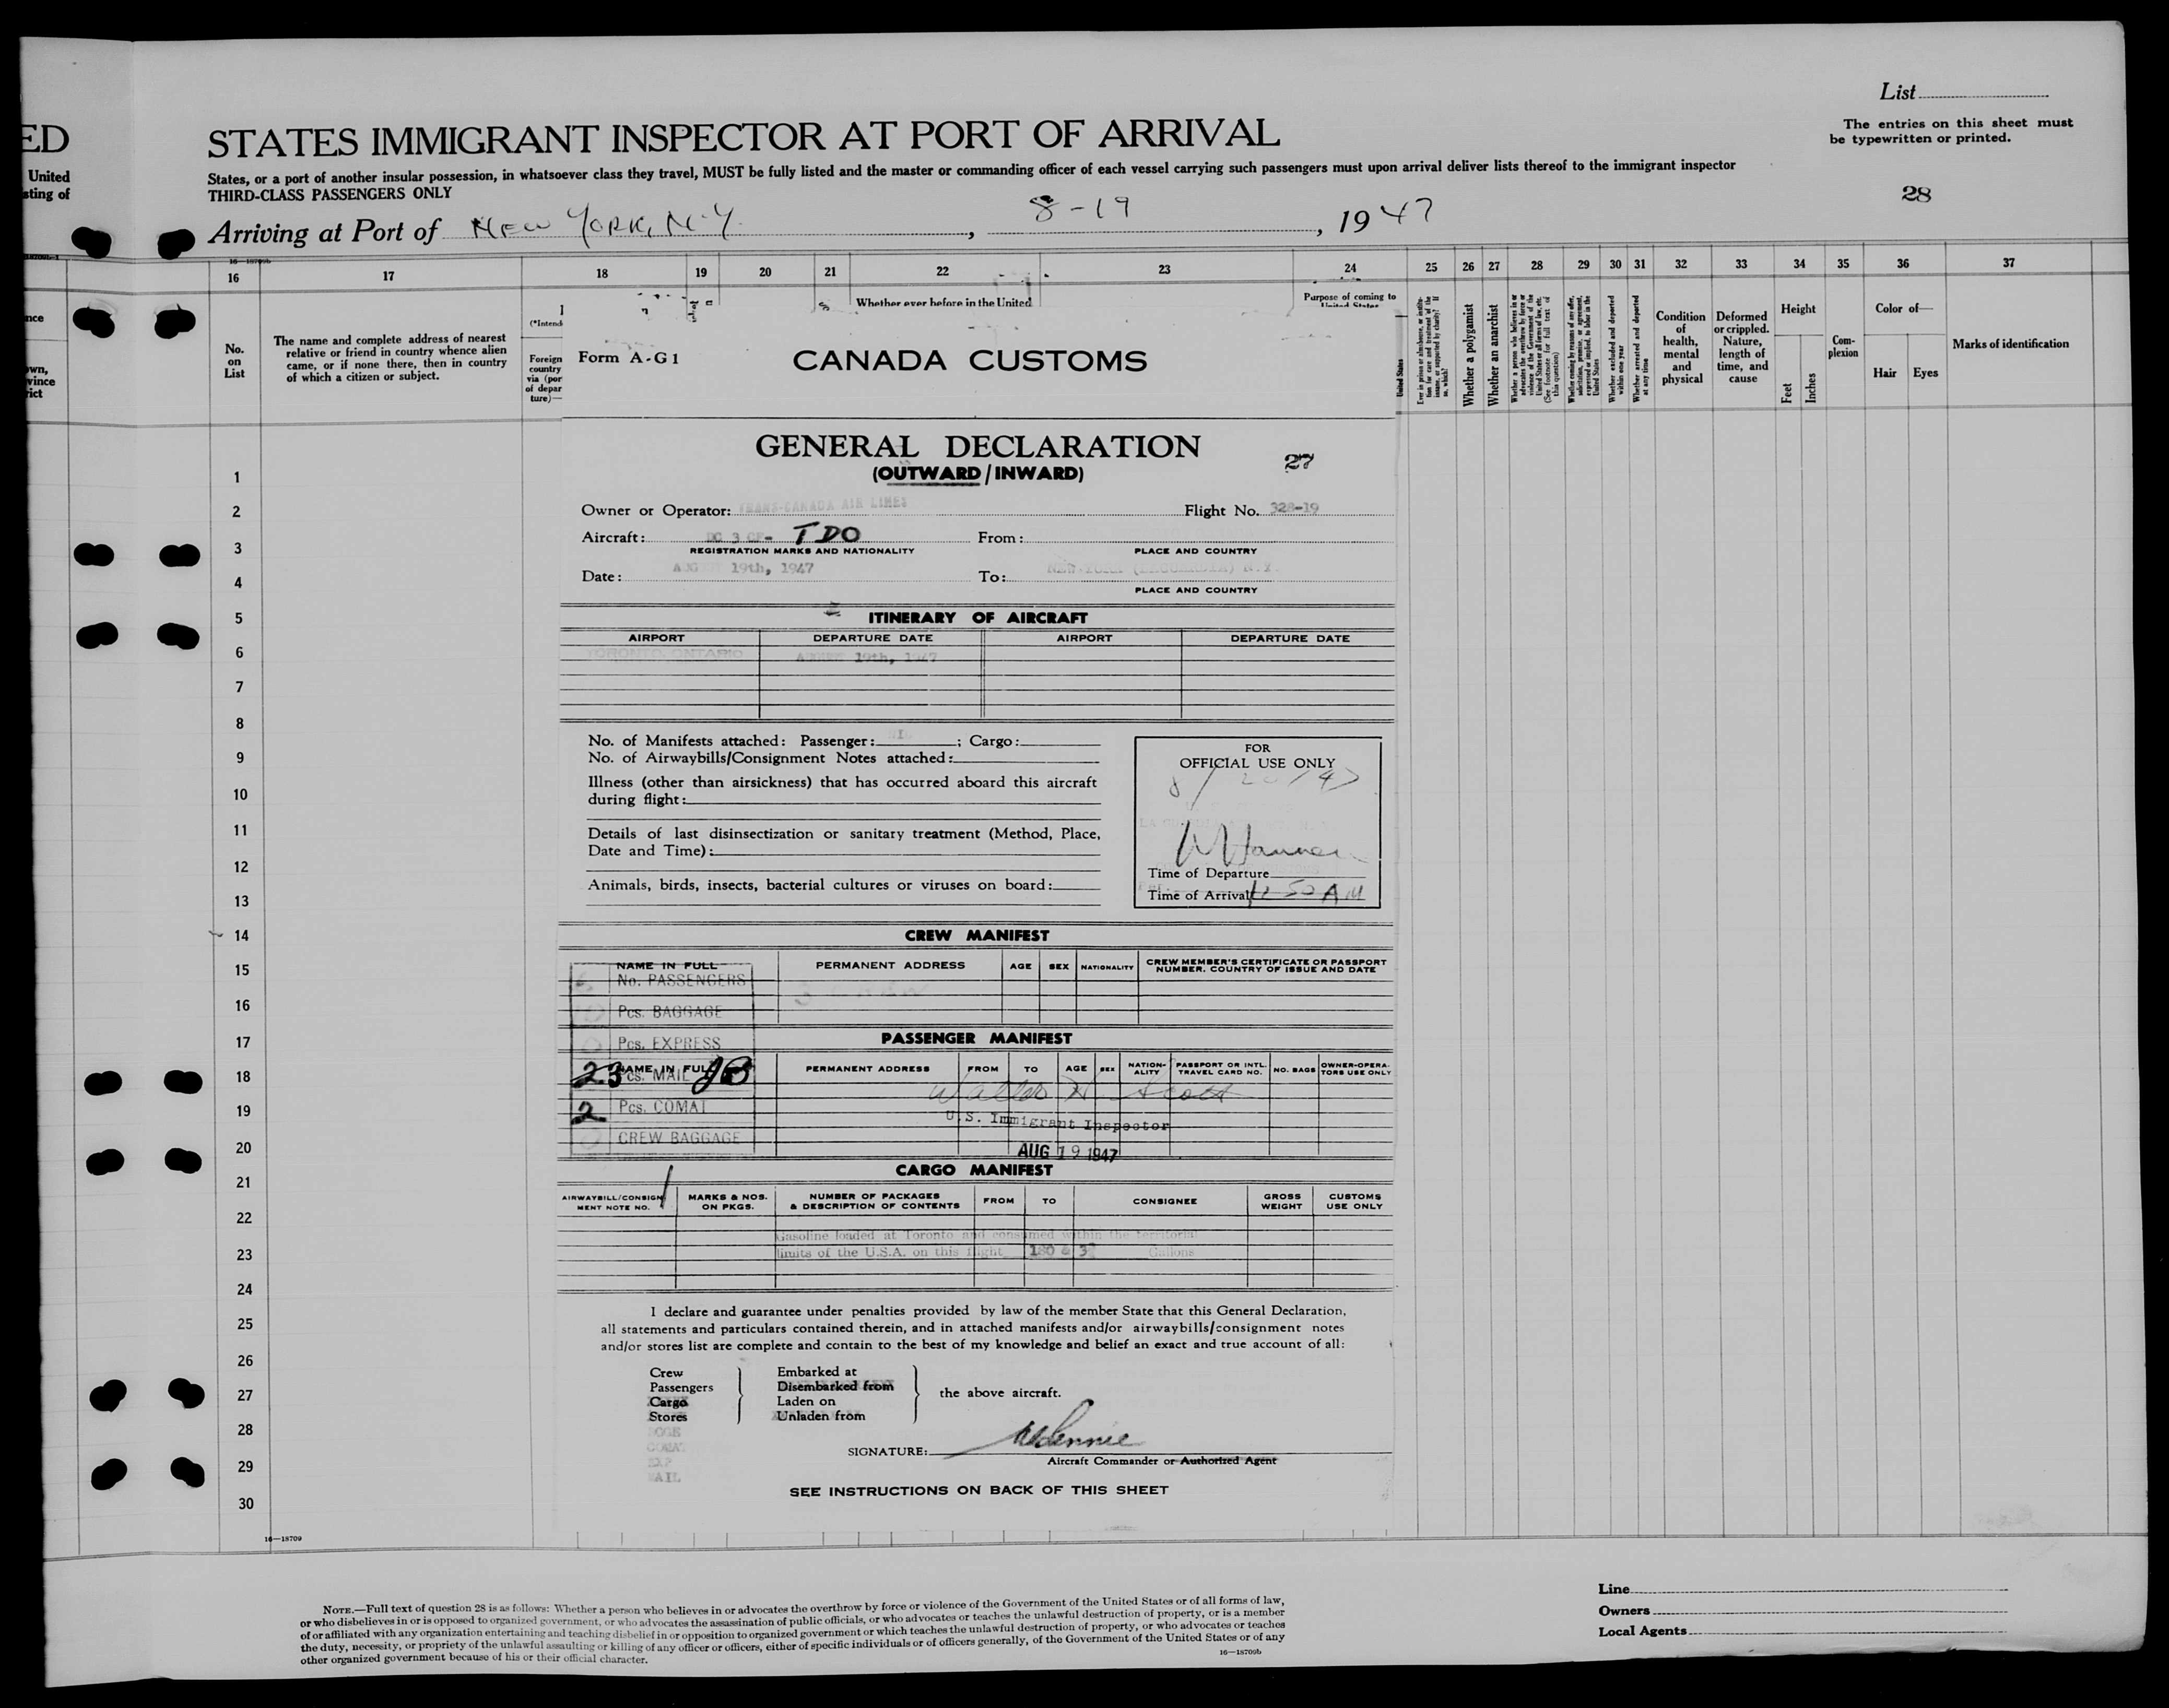 List
The entries on this sheet must
be typewritten or printed.
ED
STATES IMMIGRANT INSPECTOR AT PORT OF ARRIVAL
United
sting of
States, or a port of another insular possession, in whatsoever class they travel, MUST be fully listed and the master or commanding officer of each vessel carrying such passengers must upon arrival deliver lists thereof to the immigrant inspector
THIRD-CLASS PASSENGERS ONLY
28
Arriving at Port of NEW YORK, N.Y. , 8-19 , 1947
16 17 18 19 20 21 22 23 24 25 26 27 28 29 30 31 32 33 34 35 36 37
No.
on
List
The name and complete address of nearest
relative or friend in country whence alien
came, or if none there, then in country
of which a citizen or subject.
(*Intend
Foreign
country
via (por
of depar
ture)—
Whether ever before in the United
Purpose of coming to
United States
Whether a polygamist
Whether an anarchist
Whether excluded and deported
within one year
Whether arrested and deported
at any time
Condition
of
health,
mental
and
physical
Deformed
or crippled.
Nature,
length of
time, and
cause
Height
Feet
Inches
Com-
plexion
Color of—
Hair Eyes
Marks of identification
Form A-G1
CANADA CUSTOMS
GENERAL DECLARATION
(OUTWARD / INWARD)
27
Owner or Operator: TRANS-CANADA AIR LINES Flight No. 328-19
Aircraft: DC 3 CF- TDO From:
REGISTRATION MARKS AND NATIONALITY PLACE AND COUNTRY
Date: AUGUST 19th, 1947 To: NEW YORK (LAGUARDIA) N.Y.
PLACE AND COUNTRY
ITINERARY OF AIRCRAFT
AIRPORT DEPARTURE DATE AIRPORT DEPARTURE DATE
TORONTO, ONTARIO AUGUST 19th, 1947
No. of Manifests attached: Passenger: NIL ; Cargo:
No. of Airwaybills/Consignment Notes attached:
Illness (other than airsickness) that has occurred aboard this aircraft
during flight:
Details of last disinsectization or sanitary treatment (Method, Place,
Date and Time):
Animals, birds, insects, bacterial cultures or viruses on board:
FOR
OFFICIAL USE ONLY
8/20/47
Time of Departure
Time of Arrival 50 AM
CREW MANIFEST
NAME IN FULL PERMANENT ADDRESS AGE SEX NATIONALITY CREW MEMBER'S CERTIFICATE OR PASSPORT
NUMBER, COUNTRY OF ISSUE AND DATE
No. PASSENGERS
3 CREW
Pcs. BAGGAGE
Pcs. EXPRESS
PASSENGER MANIFEST
NAME IN FULL PERMANENT ADDRESS FROM TO AGE SEX NATION-
ALITY PASSPORT OR INTL.
TRAVEL CARD NO. NO. BAGS OWNER-OPERA-
TORS USE ONLY
23 Pcs. MAIL
Walter H. Scott
2 Pcs. COMAT
U.S. Immigrant Inspector
CREW BAGGAGE
AUG 19 1947
CARGO MANIFEST
AIRWAYBILL/CONSIGN
MENT NOTE NO. MARKS & NOS.
ON PKGS. NUMBER OF PACKAGES
& DESCRIPTION OF CONTENTS FROM TO CONSIGNEE GROSS
WEIGHT CUSTOMS
USE ONLY
Gasoline loaded at Toronto and consumed within the territorial
limits of the U.S.A. on this flight Gallons
I declare and guarantee under penalties provided by law of the member State that this General Declaration,
all statements and particulars contained therein, and in attached manifests and/or airwaybills/consignment notes
and/or stores list are complete and contain to the best of my knowledge and belief an exact and true account of all:
Crew
Passengers
Cargo
Stores
COMAT
EXP
MAIL
Embarked at
Disembarked from
Laden on
Unladen from
the above aircraft.
SIGNATURE:
Aircraft Commander or Authorized Agent
SEE INSTRUCTIONS ON BACK OF THIS SHEET
1
2
3
4
5
6
7
8
9
10
11
12
13
14
15
16
17
18
19
20
21
22
23
24
25
26
27
28
29
30
16—18709
NOTE.—Full text of question 28 is as follows: Whether a person who believes in or advocates the overthrow by force or violence of the Government of the United States or of all forms of law,
or who disbelieves in or is opposed to organized government, or who advocates the assassination of public officials, or who advocates or teaches the unlawful destruction of property, or is a member
of or affiliated with any organization entertaining and teaching disbelief in or opposition to organized government or which teaches the unlawful destruction of property, or who advocates or teaches
the duty, necessity, or propriety of the unlawful assaulting or killing of any officer or officers, either of specific individuals or of officers generally, of the Government of the United States or of any
other organized government because of his or their official character.
16—18709b
Line
Owners
Local Agents